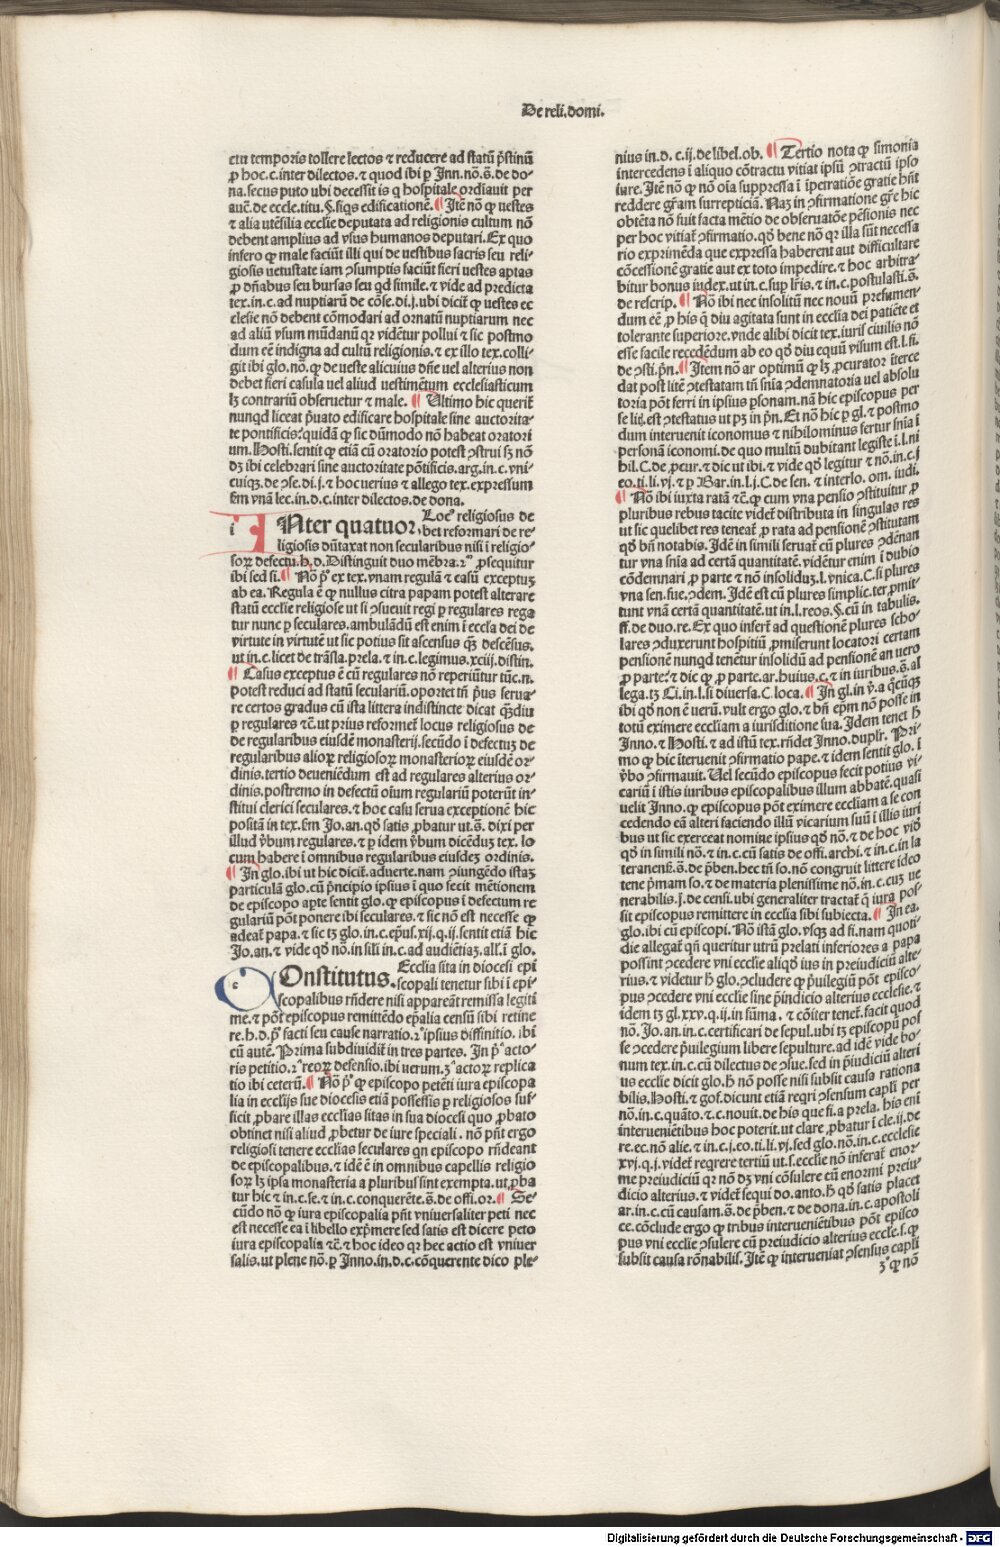 De reli.domi.
ctu temporis tollere lectos ⁊ reducere ad statū p̄stinū
ꝓ hoc.c.inter dilectos.⁊ quod ibi ꝑ Inn.nō.s̄.de do-
na.secus puto ubi decessit is q hospitale ordīauit per
auc̄.de eccle.titu.§.siqs edificationē.¶ Itē nō ꝙ uestes
⁊ alia utēsilia ecclīe deputata ad religionis cultum nō
debent amplius ad vsus humanos deputari.Ex quo
infero ꝙ male faciūt illi qui de uestibus sacris seu reli-
giosis uetustate iam ↄsumptis faciūt fieri uestes aptas
ꝓ dn̄abus seu bursas seu qd simile.⁊ vide ad predicta
tex.in.c.ad nuptiarū de cōse.di.j.ubi dicit̄ ꝙ uestes ec
clesie nō debent cōmodari ad ornatū nuptiarum nec
ad aliū vsum mūdanū qr vidētur pollui ⁊ sic postmo
dum eē indigna ad cultū religionis.⁊ ex illo tex.colli-
git ibi glo.nō.ꝙ de ueste alicuius dn̄e uel alterius non
debet fieri casula uel aliud uestimētum ecclesiasticum
lꝫ contrariū obseruetur ⁊ male.¶ Vltimo hic querit̄
nunqd liceat p̄uato edificare hospitale sine auctorita-
te pontificis:quidā ꝙ sic dūmodo nō habeat oratori
um.Hosti.sentit ꝙ etiā cū oratorio potest ↄstrui sꝫ nō
dꝫ ibi celebrari sine auctoritate pōtificis.arg.in.c.vni-
cuiqꝫ.de ↄse.di.j.⁊ hoc uerius ⁊ allego tex.expressum
s̄m vnā lec.in.d.c.inter dilectos.de dona.
INter quatuor. Loc9 religiosus de
bet reformari de re
ligiosis dūtaxat non secularibus nisi ī religio-
soꝝ defectu.h.d.Distinguit duo mēbra.2ᵐ ꝓsequitur
ibi sed si.¶ Nō p̄º ex tex.vnam regulā ⁊ casū exceptuꝫ
ab ea.Regula ē ꝙ nullus citra papam potest alterare
statū ecclīe religiose ut si ↄsueuit regi ꝑ regulares rega
tur nunc ꝑ seculares.ambulādū est enim ī eccl̄a dei de
virtute in virtutē ut sic potius sit ascensus qꝫ descēsus.
ut in.c.licet de trāsla.prela.⁊ in.c.legimus.xciij.distin.
¶ Casus exceptus ē cū regulares nō reperiūtur tūc.n.
potest reduci ad statū seculariū.oportet tn̄ p̄us serua-
re certos gradus cū ista littera indistincte dicat qꝫdiu
ꝑ regulares ⁊c̄.ut prius reformet̄ locus religiosus de
de regularibus eiusdē monasterij.secūdo ī defectuꝫ de
regularibus alioꝝ religiosoꝝ monasterioꝝ eiusdē or-
dinis.tertio deueniēdum est ad regulares alterius or-
dinis.postremo in defectū oīum regulariū poterūt in-
stitui clerici seculares.⁊ hoc casu serua exceptionē hic
positā in tex.s̄m Jo.an.qd̄ satis ꝓbatur ut.s̄.dixi per
illud v̄bum regulares.⁊ ꝑ idem v̄bum dicēduꝫ tex.lo
cum habere ī omnibus regularibus eiusdeꝫ ordinis.
¶ In glo.ibi ut hic dicit̄.aduerte.nam ↄiungēdo istaꝫ
particulā glo.cū p̄ncipio ipsius ī quo fecit mētionem
de episcopo apte sentit glo.ꝙ episcopus ī defectum re
gulariū pōt ponere ibi seculares.⁊ sic nō est necesse ꝙ
adeat̄ papa.⁊ sic tꝫ glo.in.c.ep̄us.xij.q.ij.sentit etiā hic
Jo.an.⁊ vide qd̄ nō.in sīli in.c.ad audiētiaꝫ.all.ī glo.
COnstitutus. Ecclīa sita in diocesi ep̄i
scopali tenetur sibi ī epi-
scopalibus rn̄dere nisi appareāt remissa legitī
me.⁊ pōt episcopus remittēdo ep̄alia censū sibi retine
re.h.d.p̄º facti seu cause narratio.2º ipsius diffinitio.ibi
cū autē.Prima subdiuidit̄ in tres partes. In p̄ª acto-
ris petitio.2ª reoꝝ defensio.ibi uerum.3ª actoꝝ replica
tio ibi ceterū.¶ Nō p̄º ꝙ episcopo petēti iura episcopa
lia in ecclījs sue diocesis etiā possessis ꝑ religiosos suf-
ficit ꝓbare illas ecclīas sitas in sua diocesi quo ꝓbato
obtinet nisi aliud ꝓbetur de iure speciali. nō pn̄t ergo
religiosi tenere ecclīas seculares qn episcopo rn̄deant
de episcopalibus.⁊ idē ē in omnibus capellis religio
soꝝ lꝫ ipsa monasteria a pluribus sint exempta.ut ꝓba
tur hic ⁊ in.c.se.⁊ in.c.conquerēte.s̄.de offi.or.¶ Se-
cūdo nō ꝙ iura episcopalia pn̄t vniuersaliter peti nec
est necesse ea ī libello exp̄mere sed satis est dicere peto
iura episcopalia ⁊c̄.⁊ hoc ideo qr hec actio est vniuer
salis.ut plene nō.ꝑ Inno.in.d.c.cōquerente dico ple-
nius in.d. c.ij.de libel.ob. ¶ Tertio nota ꝙ simonia
intercedens ī aliquo cōtractu vitiat ipsū ↄtractū ipso
iure. Itē nō ꝙ nō oīa suppressa ī īperatiōe gratie hn̄t
reddere gr̄am surrepticiā. Naꝫ in ↄfirmatione gr̄e hic
obtēta nō fuit facta mētio de obseruatōe pēsionis nec
per hoc vitiat̄ ↄfirmatio.qd̄ bene nō qr illa sūt necessa
rio exprimēda que expressa haberent aut difficultare
cōcessionē gratie aut ex toto impedire.⁊ hoc arbitra-
bitur bonus iudex.ut in.c.suꝑ lr̄is.⁊ in.c.postulasti.s̄.
de rescrip.¶ Nō ibi nec insolitū nec nouū presumen-
dum eē ꝓ his q diu agitata sunt in ecclīa dei patiēte et
tolerante superiore.vnde alibi dicit tex.iuris ciuilis nō
esse facile recedēdum ab eo qd̄ diu equū visum est.l.fi.
de ↄsti.pn̄.¶ Item nō ar optimū ꝙ lꝫ ꝓcurator īterce
dat post litē ↄtestatam tn̄ snīa ↄdemnatoria uel absolu
toria pōt ferri in ipsius ꝑsonam.nā hic episcopus per
se lit̄.est ↄtestatus ut pꝫ in pn̄. Et nō hic ꝑ gl.⁊ postmo
dum interuenit iconomus ⁊ nihilominus fertur snīa ī
personā iconomi.de quo multū dubitant legiste ī.l.ni
hil.C.de ꝓcur.⁊ dic ut ibi.⁊ vide qd̄ legitur ⁊ nō.in.c.j
eo.ti.li.vj.⁊ ꝑ Bar.in.l.j.C.de sen.⁊ interlo. om. iudi.
¶ Nō ibi iuxta ratā ⁊c̄.ꝙ cum vna pensio ↄstituitur ꝓ
pluribus rebus tacite videt̄ distributa in singulas res
ut sic quelibet res teneat̄ ꝓ rata ad pensionē ↄstitutam
qd̄ bn̄ notabis. Idē in simili seruat̄ cū plures ↄdēnan
tur vna snīa ad certā quantitatē.vidētur enim ī dubio
cōdemnari ꝓ parte ⁊ nō insoliduꝫ.l.vnica.C.si plures
vna sen.fue.ↄdem. Idē est cū plures simplic.ter.ꝓmit-
tunt vnā certā quantitatē.ut in.l.reos.§.cū in tabulis.
ff.de duo.re.Ex quo insert̄ ad questionē plures scho-
lares ↄduxerunt hospitiū ꝓmiserunt locatori certam
pensionē nunqd tenētur insolidū ad pensionē an uero
ꝓ parte:⁊ dic ꝙ ꝓ parte.ar.huius.c.⁊ in iuribus.s̄.al
lega.tꝫ Ci.in.l.si diuersa.C loca.¶ In gl.in v̄.a qcūqꝫ
ibi qd̄ non ē uerū.vult ergo glo.⁊ bn̄ ep̄m nō posse in
totū eximere ecclīam a iurisditione sua. Idem tenet h̄
Inno.⁊ Hosti.⁊ ad istū tex.rn̄det Inno.duplr̄. Pri-
mo ꝙ hic īteruenit ↄfirmatio pape.⁊ idem sentit glo. ī
v̄bo ↄfirmauit. Uel secūdo episcopus fecit potius vi-
cariū ī istis iuribus episcopalibus illum abbatē.quasi
uelit Inno.ꝙ episcopus pōt eximere ecclīam a se con
cedendo eā alteri faciendo illū vicarium suū ī illis iuri
bus ut sic exerceat nomine ipsius qd̄ nō.⁊ de hoc vid̄
qd̄ in simili nō.⁊ in.c.cū satis de offi.archi.⁊ in.c.in la
teranenſ.s̄.de p̄ben.hec tn̄ so.nō congruit littere ideo
tene p̄mam so.⁊ de materia plenissime nō.in.c.cuꝫ ue
nerabilis.j.de censi.ubi generaliter tractat̄ q iura pos-
sit episcopus remittere in ecclīa sibi subiecta.¶ In ea.
glo.ibi cū episcopi. Nō istā glo.vsqꝫ ad fi.nam quoti-
die allegat̄ qn̄ queritur utrū prelati inferiores a papa
possint ↄcedere vni ecclīe aliqd̄ ius in preiudiciū alte-
rius.⁊ videtur h̄ glo.ↄcludere ꝙ p̄uilegiū pōt episco-
pus ↄcedere vni ecclīe sine p̄iudicio alterius ecclesie.⁊
idem tꝫ gl.xxv.q.ij.in sūma.⁊ cōiter tenet̄.facit quod
nō. Jo.an.in.c.certificari de sepul.ubi tꝫ episcopū pos
se ↄcedere p̄uilegium libere sepulture.ad idē vide bo-
num tex.in.c.cū dilectus de ↄsue.sed in p̄iudiciū alteri
us ecclīe dicit glo.h̄ nō posse nisi subsit causa rationa
bilis.Hosti.⁊ gof.dicunt etiā reqri ↄsensum capli per
nō.in.c.quāto.⁊.c.nouit.de his que fi.a prela. his enī
interueniētibus hoc poterit.ut clare ꝓbatur ī cle.ij.de
re.ec.nō alie.⁊ in.c.j.eo.ti.li.vj.sed glo.nō.in.c.ecclesie
xvj.q.j.videt̄ reqrere tertiū ut.s.ecclīe nō inferat̄ enor-
me preiudiciū qr nō dꝫ vni cōsulere cū enormi preiu-
dicio alterius.⁊ videt̄ sequi do.anto.h̄ qd̄ satis placet
ar.in.c.cū causam.s̄.de p̄ben.⁊ de dona.in.c.apostoli
ce.cōclude ergo ꝙ tribus interueniētibus pōt episco
pus vni ecclīe ↄsulere cū preiudicio alterius eccle.s.ꝙ
subsit causa rōnabilis. Itē ꝙ interueniat ↄsensus capli
3º ꝙ nō
Digitalisierung gefördert durch die Deutsche Forschungsgemeinschaft - DFG